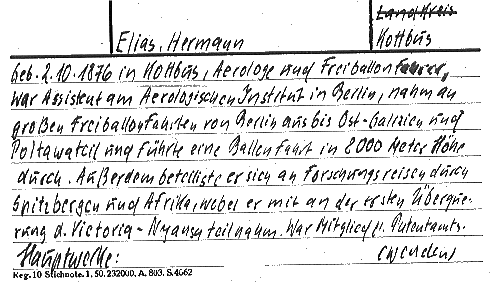 Land Kreis
Elias, Hermann
Kottbus
geb. 2.10.1876 in Kottbus, Aerologe und Freiballonfahrer,
war Assistent am Aerologischen Institut in Berlin, nahm an
großen Freiballonfahrten von Berlin aus bis Ost-Galizien und
Poltawa teil und führte eine Ballonfahrt in 8000 Meter Höhe
durch. Außerdem beteiligte er sich an Forschungsreisen durch
Spitzbergen und Afrika, wobei er mit an der ersten Überque-
rung d. Victoria-Nyansa teilnahm. War Mitglied d. Patentamts.
Hauptwerke: (wenden)
Reg. 10 Stichnote. 1. 50. 232000. A. 803. S. 4062